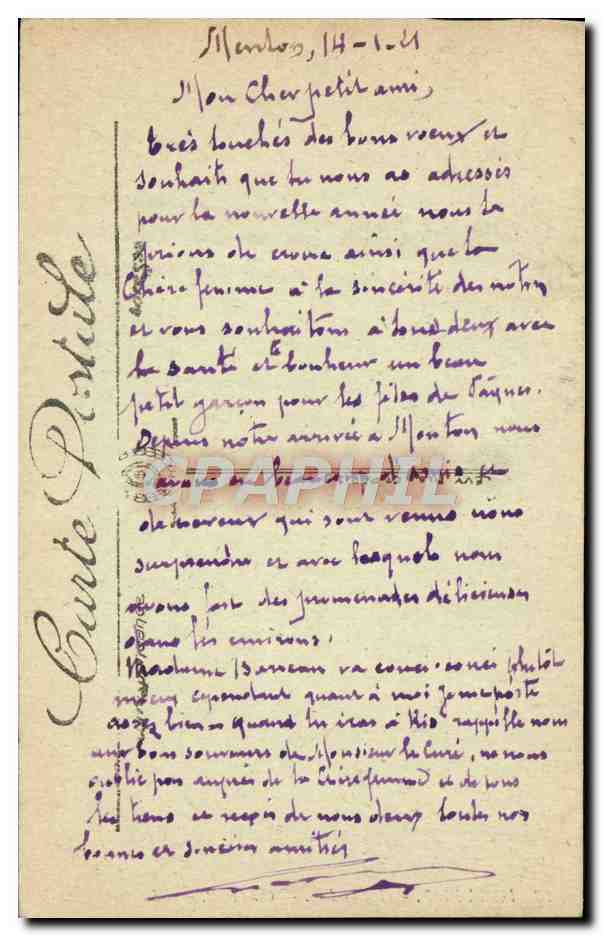 Menton, 14-1-21
Mon Cher petit ami,
très touchés des bons voeux et
souhaits que tu nous as adressés
pour la nouvelle année nous te
prions de croire ainsi que ta
Chère femme à la sincérité des notres
et vous souhaitons à tous deux avec
la santé et le bonheur un beau
petit garçon pour les fêtes de Pâques.
Depuis notre arrivée à Menton nous
avons eu beaucoup d'amis et
de neveux qui sont venus nous
surprendre et avec lesquels nous
avons fait des promenades délicieuses
dans les environs.
Madame va couci-couci plutôt
mieux cependant quant à moi je me porte
assez bien quand tu iras à rappelle nous
aux bon souvenirs de Monsieur le Curé, ne nous
oublie pas auprès de ta Chère femme et de tous
les tiens et reçois de nous deux toutes nos
bonnes et sincères amitiés
Carte Postale
CPAPHIL